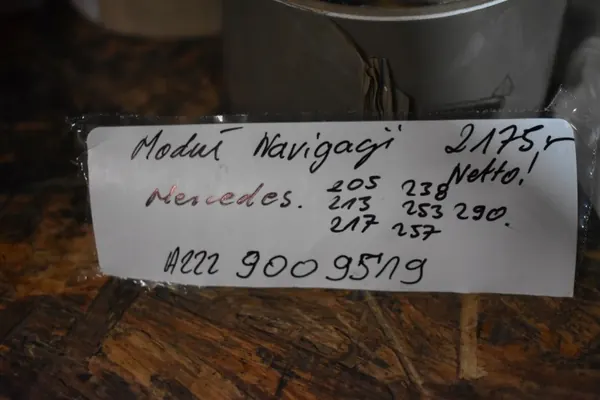 Moduł Nawigacji 2175,-
Netto!
Mercedes. 205 238
213 253 290.
217 257
A222 900 9519